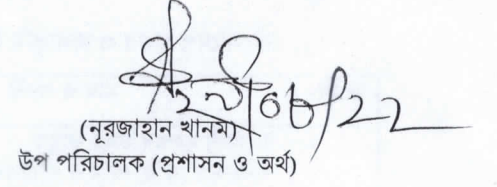 (নূরজাহান খানম)
উপ পরিচালক (প্রশাসন ও অর্থ)